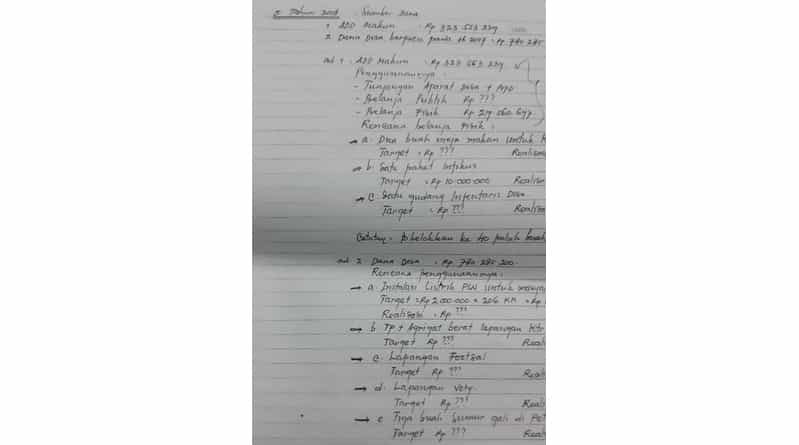 Tahun 2017 . Sumber Dana
1. ADD Makun : Rp 323 563 239
2. Dana Desa bergulir pada th 2017 : Rp 780.285
ad 1. ADD Makun : Rp 323 563 239
Penggunaannya :
- Tunjangan Aparat Desa +
- Belanja Publik Rp ???
- Belanja Fisik Rp 217.560.647
Rencana belanja Fisik :
→ a. Dua buah meja makan untuk K
Target = Rp ??? Realisas
→ b. Satu paket Infokus
Target = Rp 10.000.000 Realisas
→ c. Satu gudang Infentaris Desa
Target = Rp ??? Realisa
Catatan : Dibelokkan ke 40 buah
ad 2. Dana Desa : Rp 780.285.200
Rencana penggunaannya :
→ a. Instalasi Listrik PLN untuk
Target = Rp 2.000.000 x 206 KK = Rp
Realisasi = Rp ???
→ b. TP + Agrigat berat lapangan Ktr
Target Rp ??? Reali
→ c. Lapangan Footsal
Target Rp ??? Reali
→ d. Lapangan Voly
Target Rp ??? Reali
→ e Tiga buah Sumur gali di
Target Rp ??? Reali